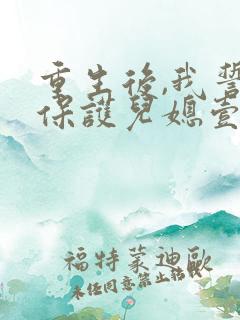 重生後,我誓
保護兒媳壹
福特蒙迪歐
未經同意禁止轉載